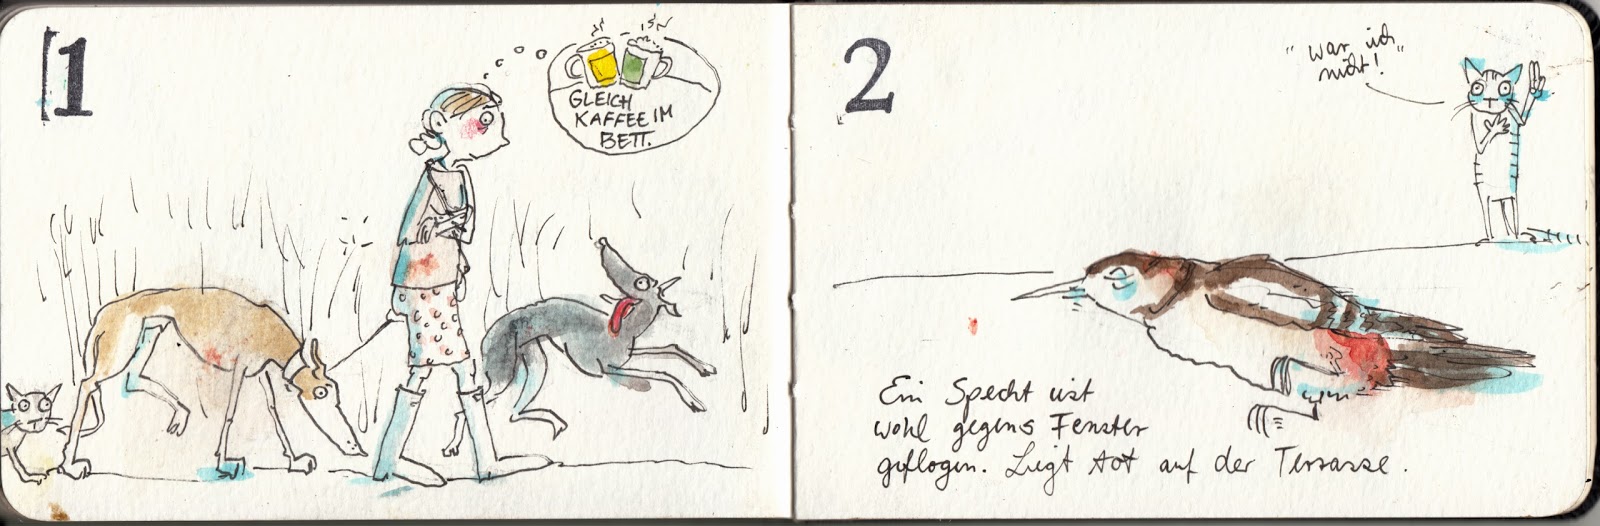 1
GLEICH
KAFFEE IM
BETT.
2
"war ich
nicht!"
Ein Specht ist
wohl gegens Fenster
geflogen. Liegt tot auf der Terrasse.